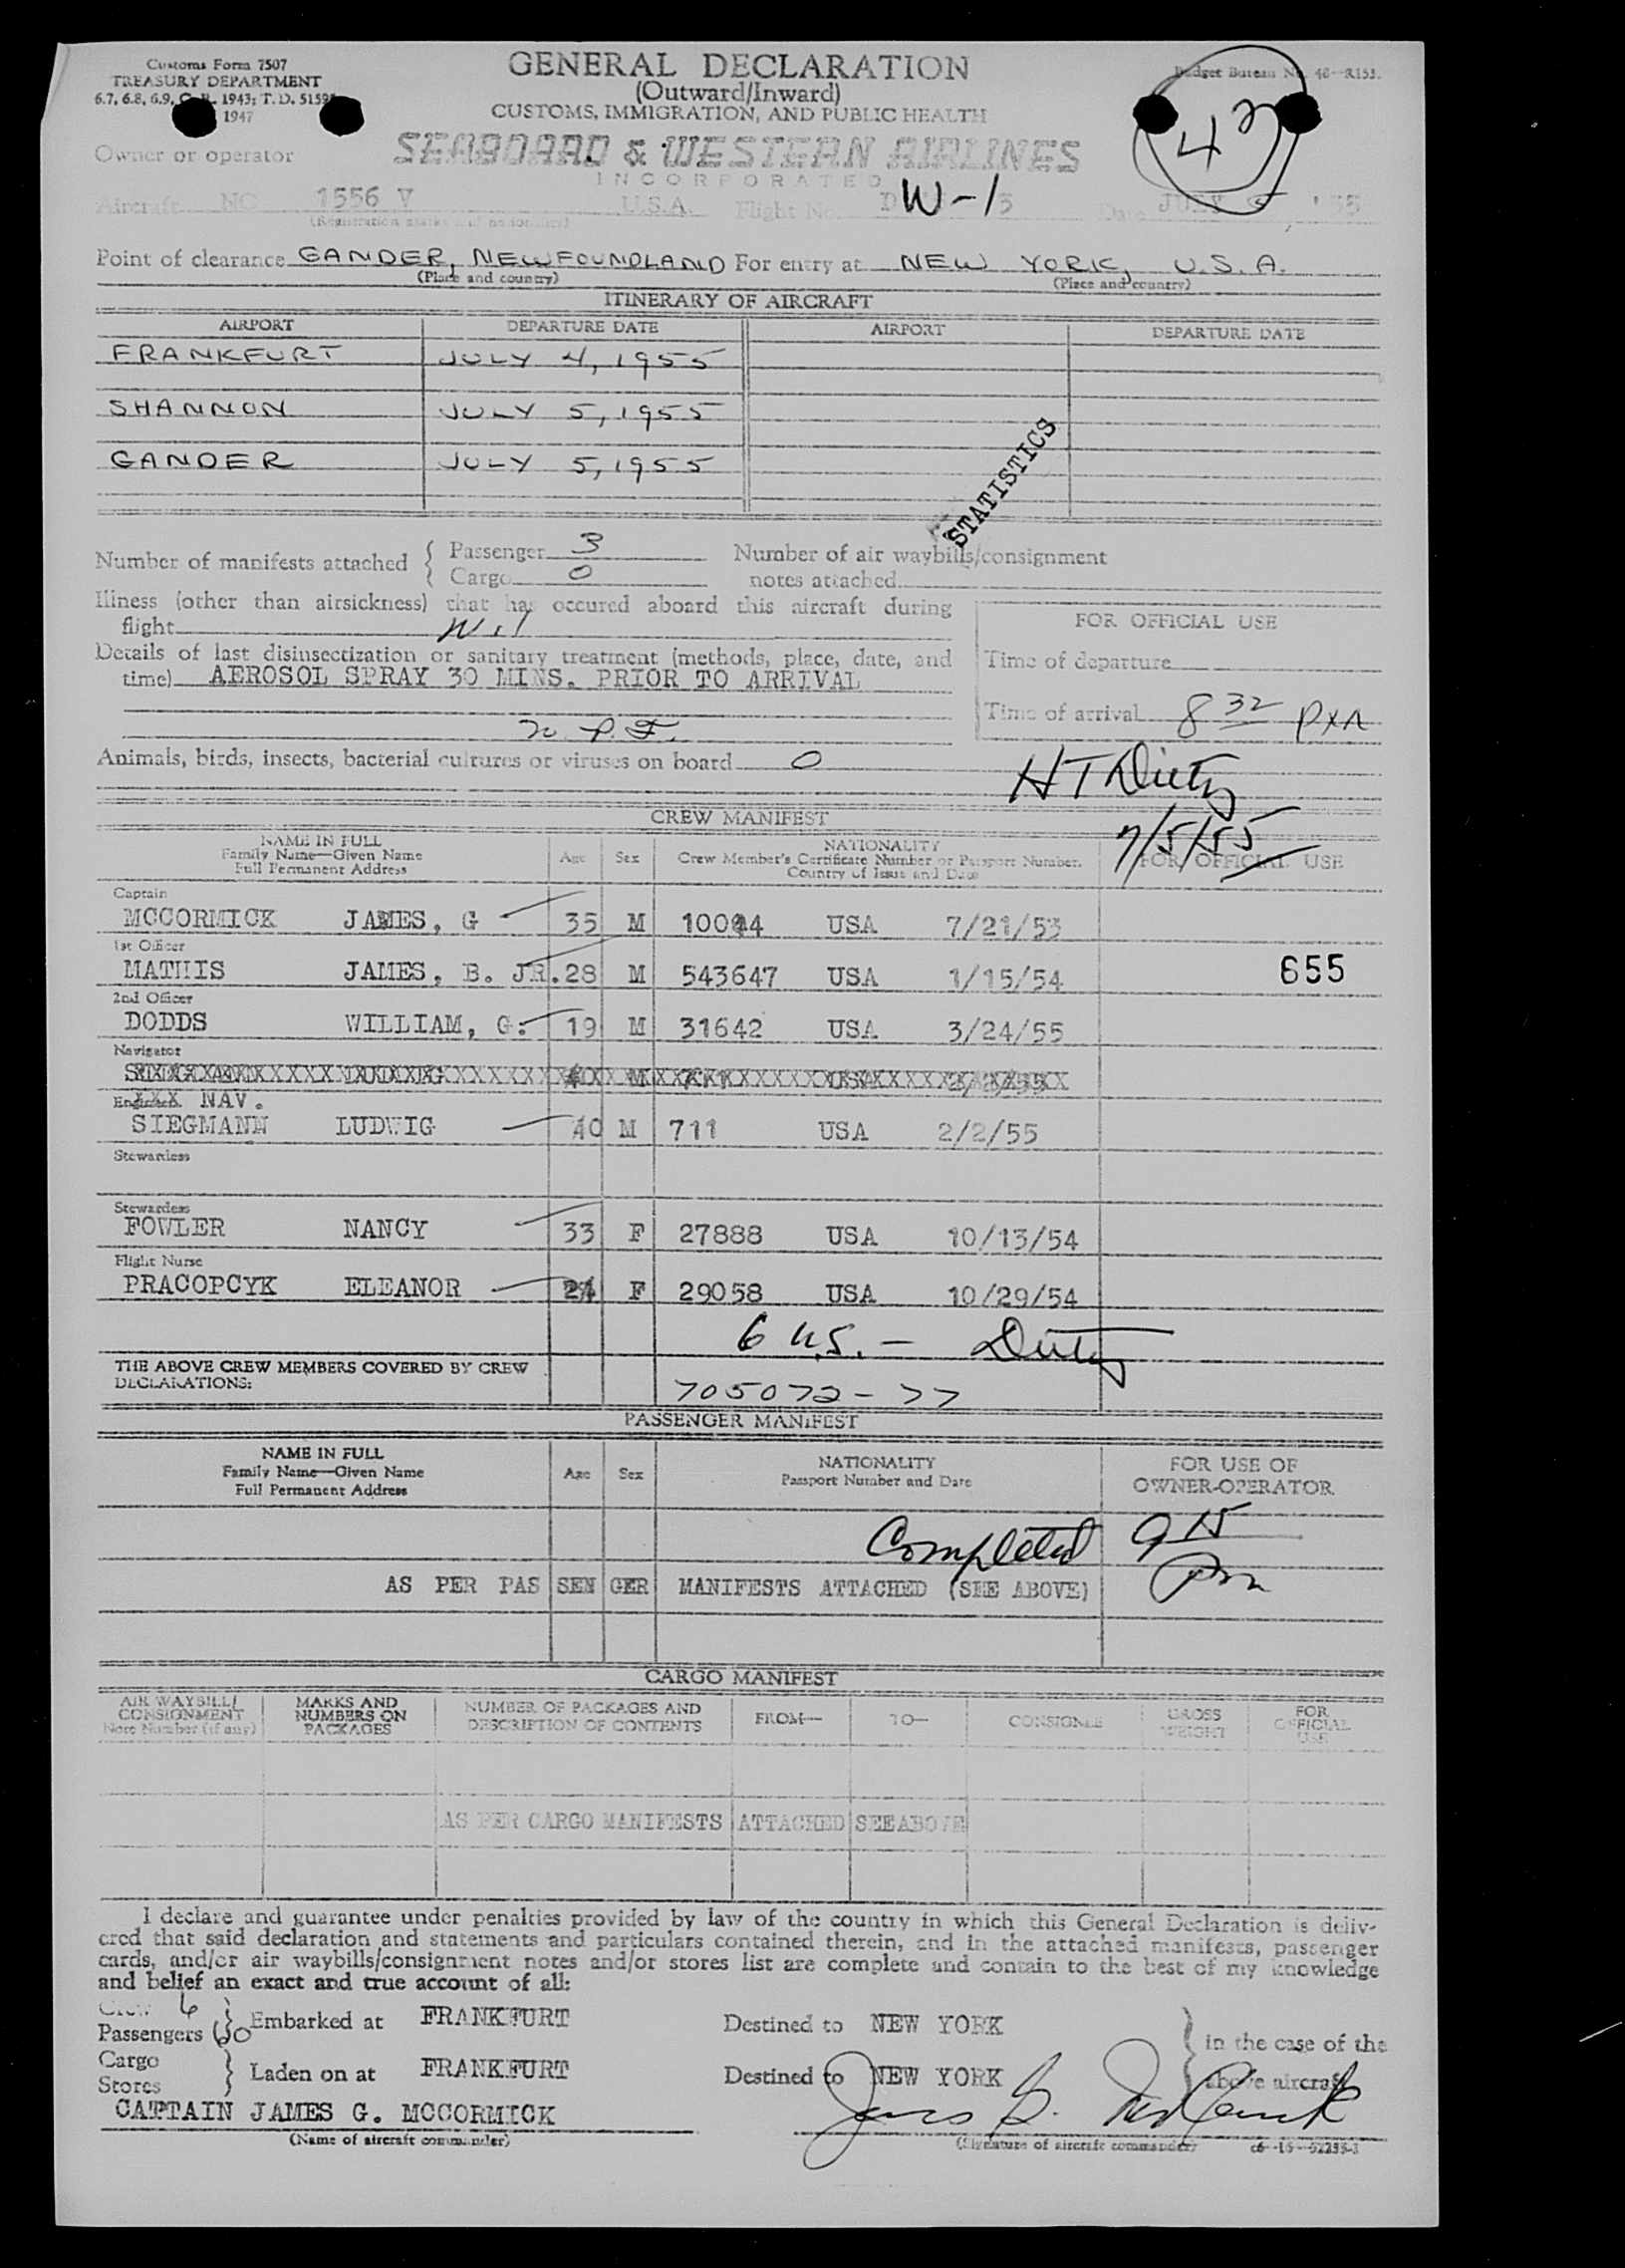 Customs Form 7507
TREASURY DEPARTMENT
6.7, 6.8, 6.9, 1943; T. D.
1947
GENERAL DECLARATION
(Outward/Inward)
CUSTOMS, IMMIGRATION, AND PUBLIC HEALTH
Budget Bureau No. 48-R153.
42
Owner or operator SEABOARD & WESTERN AIRLINES
INCORPORATED
Aircraft NC 1556 V U.S.A. Flight No. W-1 Date JULY 5 '55
(Registration marks and nationality)
Point of clearance GANDER, NEWFOUNDLAND For entry at NEW YORK, U.S.A.
(Place and country) (Place and country)
ITINERARY OF AIRCRAFT
AIRPORT DEPARTURE DATE AIRPORT DEPARTURE DATE
FRANKFURT JULY 4, 1955
SHANNON JULY 5, 1955
GANDER JULY 5, 1955
STATISTICS
Number of manifests attached { Passenger 3 Number of air waybills/consignment
Cargo 0 notes attached
Illness (other than airsickness) that has occured aboard this aircraft during
flight Nil
FOR OFFICIAL USE
Details of last disinsectization or sanitary treatment (methods, place, date, and
time) AEROSOL SPRAY 30 MINS. PRIOR TO ARRIVAL
Time of departure
Time of arrival 8 32
Animals, birds, insects, bacterial cultures or viruses on board 0
7/5/55
CREW MANIFEST
NAME IN FULL
Family Name—Given Name
Full Permanent Address
Age Sex
NATIONALITY
Crew Member's Certificate Number or Passport Number.
Country of Issue and Date
FOR OFFICIAL USE
Captain
MCCORMICK JAMES, G 35 M USA 7/21/53
1st Officer
MATHIS JAMES, B. JR. 28 M 543647 USA 1/15/54
655
2nd Officer
DODDS WILLIAM, G. 19 M 31642 USA 3/24/55
Navigator
Engineer XXX NAV.
SIEGMANN LUDWIG 40 M 711 USA 2/2/55
Stewardess
Stewardess
FOWLER NANCY 33 F 27888 USA 10/13/54
Flight Nurse
PRACOPCYK ELEANOR 24 F 29058 USA 10/29/54
6 U.S. —
THE ABOVE CREW MEMBERS COVERED BY CREW
DECLARATIONS: 705072-77
PASSENGER MANIFEST
NAME IN FULL
Family Name—Given Name
Full Permanent Address
Age Sex
NATIONALITY
Passport Number and Date
FOR USE OF
OWNER-OPERATOR
Completed 9 15
AS PER PASSENGER MANIFESTS ATTACHED (SEE ABOVE)
CARGO MANIFEST
AIR WAYBILL/
CONSIGNMENT
Note Number (if any)
MARKS AND
NUMBERS ON
PACKAGES
NUMBER OF PACKAGES AND
DESCRIPTION OF CONTENTS
FROM— TO— CONSIGNEE
GROSS
WEIGHT
FOR
OFFICIAL
USE
AS PER CARGO MANIFESTS ATTACHED SEE ABOVE
I declare and guarantee under penalties provided by law of the country in which this General Declaration is deliv-
ered that said declaration and statements and particulars contained therein, and in the attached manifests, passenger
cards, and/or air waybills/consignment notes and/or stores list are complete and contain to the best of my knowledge
and belief an exact and true account of all:
Crew 6
Passengers 60 } Embarked at FRANKFURT Destined to NEW YORK } in the case of the
Cargo
Stores } Laden on at FRANKFURT Destined to NEW YORK above aircraft
CAPTAIN JAMES G. MCCORMICK James G. McCormick
(Name of aircraft commander) (Signature of aircraft commander)